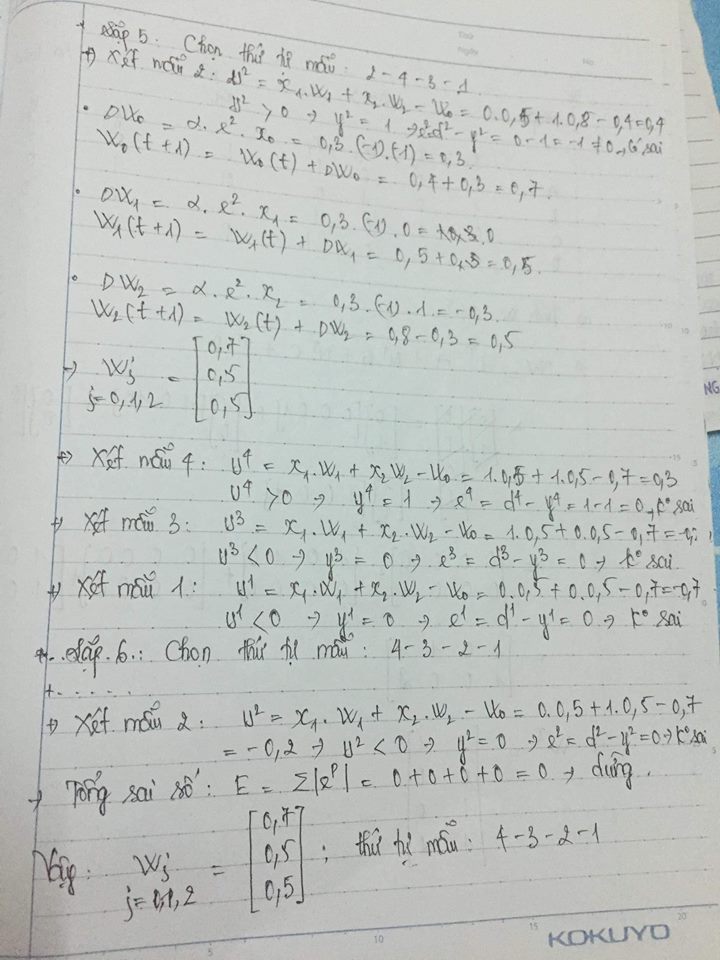 + Lặp 5: Chọn thứ tự mẫu: 2-4-3-1
+) Xét mẫu 2: u² = x₁.W₁ + x₂.W₂ - W₀ = 0.0,5 + 1.0,8 - 0,4 = 0,4
u² > 0 → y² = 1 → e² = d² - y² = 0 - 1 = -1 ≠ 0 → có sai
• DW₀ = α. e². x₀ = 0,3.(-1).(-1) = 0,3.
W₀(t+1) = W₀(t) + DW₀ = 0,4 + 0,3 = 0,7.
• DW₁ = α. e². x₁ = 0,3.(-1).0 = 0
W₁(t+1) = W₁(t) + DW₁ = 0,5 + 0 = 0,5.
• DW₂ = α. e². x₂ = 0,3.(-1).1 = -0,3.
W₂(t+1) = W₂(t) + DW₂ = 0,8 - 0,3 = 0,5
→ Wj = [0,7
0,5
j=0,1,2 0,5]
+) Xét mẫu 4: u⁴ = x₁.W₁ + x₂W₂ - W₀ = 1.0,5 + 1.0,5 - 0,7 = 0,3
u⁴ > 0 → y⁴ = 1 → e⁴ = d⁴ - y⁴ = 1 - 1 = 0 → k° sai
+) Xét mẫu 3: u³ = x₁.W₁ + x₂.W₂ - W₀ = 1.0,5 + 0.0,5 - 0,7 = -0,
u³ < 0 → y³ = 0 → e³ = d³ - y³ = 0 → k° sai
+) Xét mẫu 1: u¹ = x₁.W₁ + x₂.W₂ - W₀ = 0.0,5 + 0.0,5 - 0,7 = -0,7
u¹ < 0 → y¹ = 0 → e¹ = d¹ - y¹ = 0 → k° sai
+ Lặp 6: Chọn thứ tự mẫu: 4-3-2-1
+ . . . . . .
+) Xét mẫu 2: u² = x₁.W₁ + x₂.W₂ - W₀ = 0.0,5 + 1.0,5 - 0,7
= -0,2 → u² < 0 → y² = 0 → e² = d² - y² = 0 → k° sai
→ Tổng sai số: E = Σ|eᵖ| = 0+0+0+0 = 0 → dừng.
Vậy: Wj = [0,7
0,5 ; thứ tự mẫu: 4-3-2-1
j=0,1,2 0,5]
5 10 15 20
KOKUYO
NG